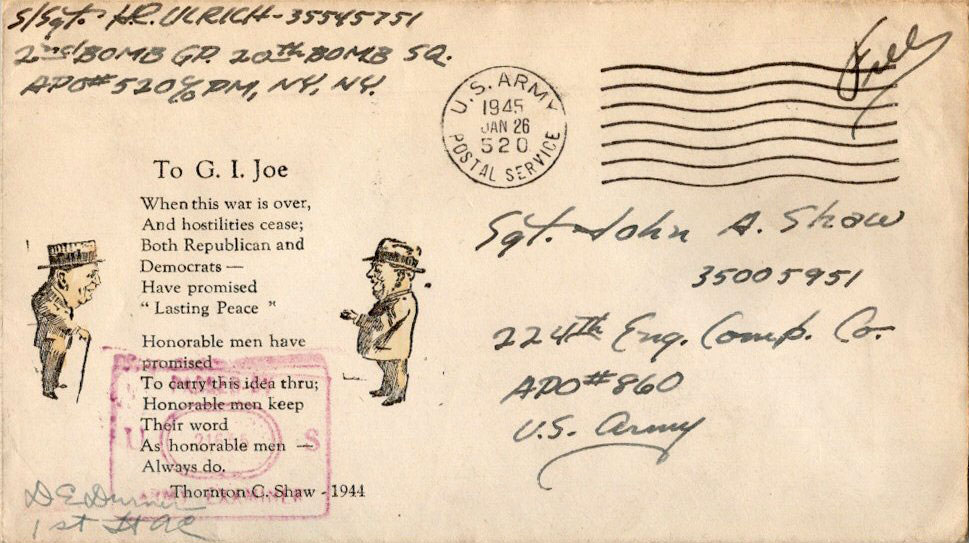 S/Sgt. H.R. ULRICH - 35545751
2nd BOMB GP. 20th BOMB SQ.
APO# 520 c/o PM, NY, NY.
Free
U.S. ARMY
1945
JAN 26
520
POSTAL SERVICE
To G. I. Joe
When this war is over,
And hostilities cease;
Both Republican and
Democrats —
Have promised
“ Lasting Peace ”
Honorable men have
promised
To carry this idea thru;
Honorable men keep
Their word
As honorable men —
Always do.
Thornton C. Shaw - 1944
Sgt. John A. Shaw
35005951
224th Eng. Comb. Co.
APO #860
U.S. Army
U S
EXAMINER
1st Lt AC